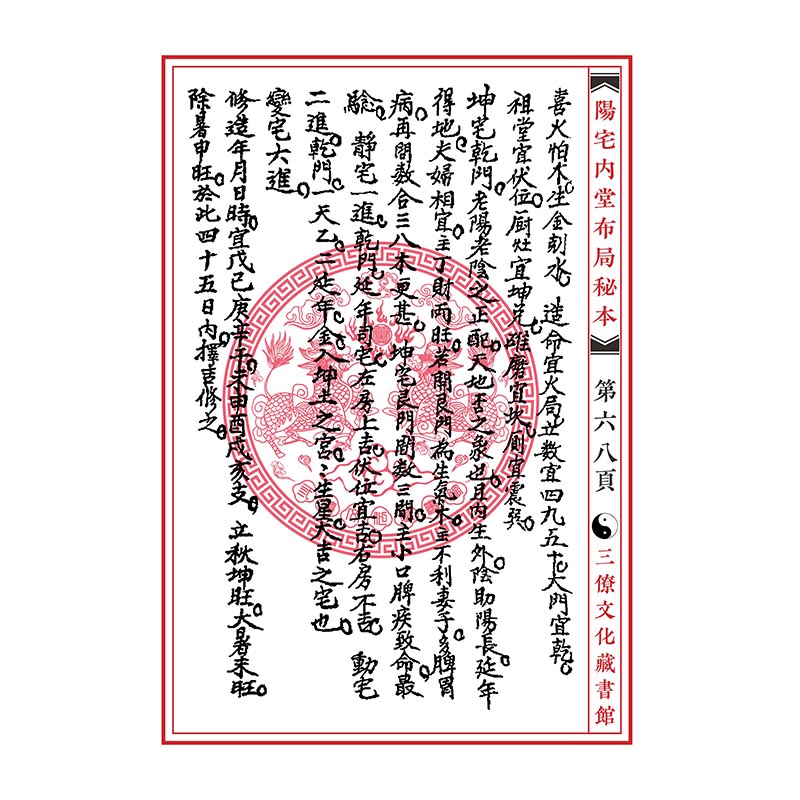 陽宅内堂布局秘本
第六八頁
三僚文化藏書館
喜火怕木生金剋水。造命宜火局。立数宜四九五十。大門宜乾。
祖堂宜伏位。厨灶宜坤兑。碓磨宜坎。厠宜震巽。
坤宅乾門。老陽老陰之正配。天地否之象也。且内生外。陰助陽長。延年
得地。夫婦相宜。主丁財両旺。若開艮門為生氣。木主不利妻子。多脾胃
病。再間数合三八木更甚。坤宅艮門間数三間。主小口脾疾致命。最
驗。靜宅一進乾門延年司宅。左房上吉。伏位宜吉。右房不吉。動宅
二進。乾門一天乙。二延年。金入坤土之宫。宫生星。大吉之宅也。
變宅大進。
修造年月日時。宜戊己庚辛午未申酉戌亥支。立秋坤旺。大暑未旺。
除暑申旺。於此四十五日内。擇吉修之。